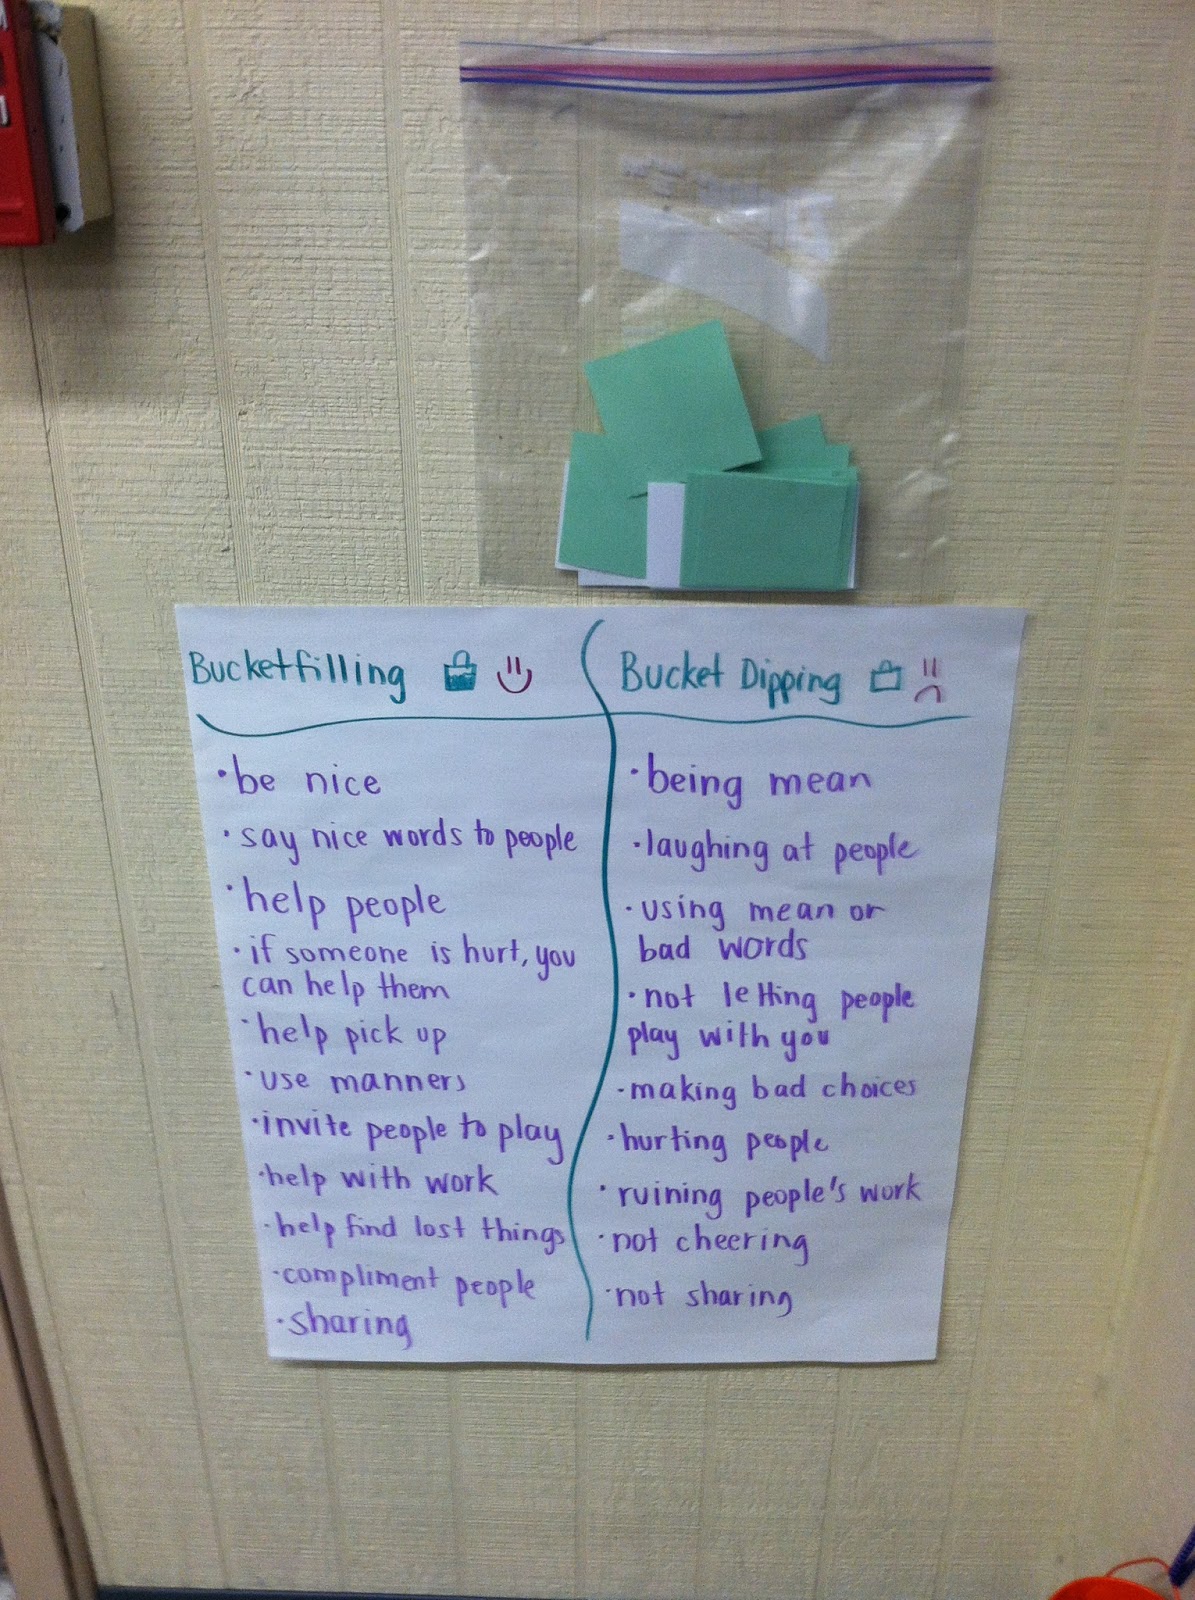 Bucketfilling
• be nice
• say nice words to people
• help people
• if someone is hurt, you
can help them
• help pick up
• use manners
• invite people to play
• help with work
• help find lost things
• compliment people
• sharing
Bucket Dipping
• being mean
• laughing at people
• using mean or
bad words
• not letting people
play with you
• making bad choices
• hurting people
• ruining people's work
• not cheering
• not sharing